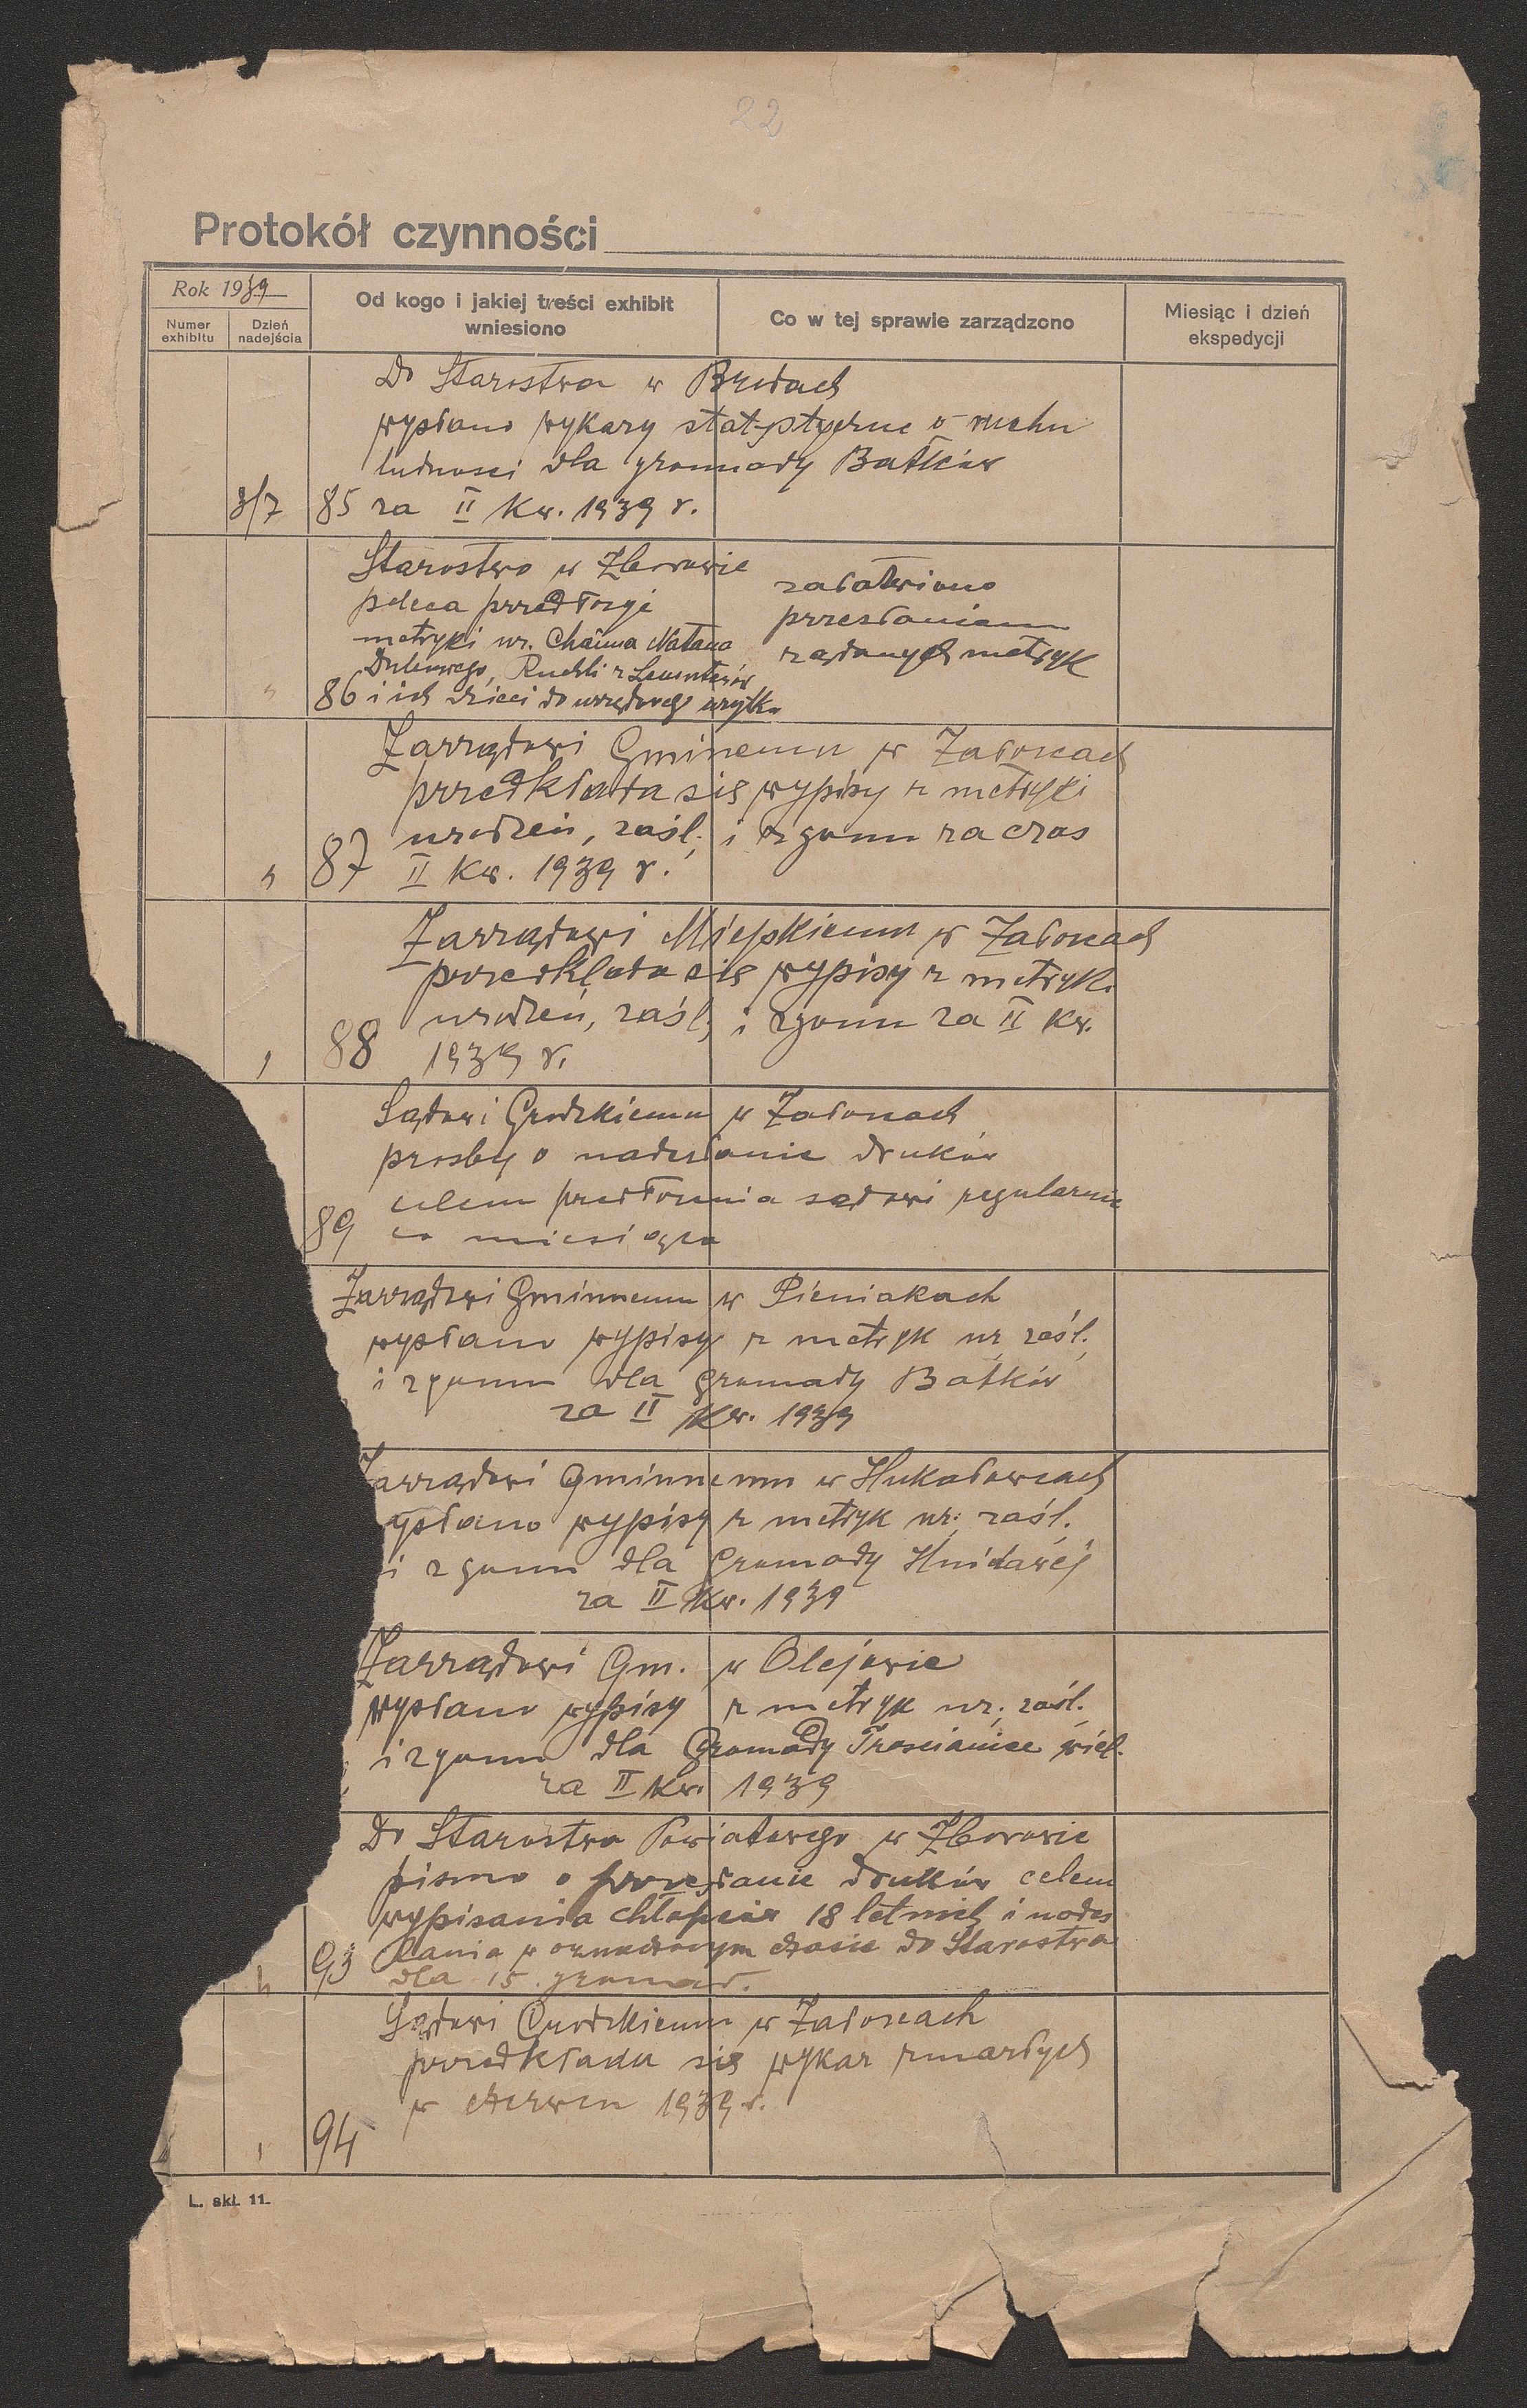 22
Protokół czynności
Rok 1939
Numer exhibitu
Dzień nadejścia
Od kogo i jakiej treści exhibit wniesiono
Co w tej sprawie zarządzono
Miesiąc i dzień ekspedycji
Do Starostwa w Brodach
wysłano wykazy statystyczne o ruchu
ludności dla gromady Batków
3/7 85 za II Kw. 1939 r.
Starostwo w Zborowie
poleca przedłożyć
metryki ur. Chaima Natana
Ruchli z
" 86 i ich dzieci do urzędowego użytku
załatwiono
przesłaniem
żądanych metryk
Zarządowi Gminnemu w Załoscach
przedkłada się wypisy z metryki
urodzeń, zaśl. i zgonu za czas
" 87 II Kw. 1939 r.
Zarządowi Miejskiemu w Załoscach
przedkłada się wypisy z metryk.
urodzeń, zaśl. i zgonu za II Kw.
88 1939 r.
Sądowi Grodzkiemu w Załoscach
prosby o nadesłanie druków
celem przedłożenia sądowi regularnie
89 co miesiąca
Zarządowi Gminnemu w Pieniakach
wysłano wypisy z metryk ur. zaśl.
i zgonu dla gromady Batków
za II Kw. 1939
Zarządowi Gminnemu w Hukałowcach
ysłano wypisy z metryk ur. zaśl.
i zgonu dla Gromady Hnidawej
za II Kw. 1939
Zarządowi Gm. w Olejowie
wysłano wypisy z metryk ur. zaśl.
i zgonu dla Gromady Trościaniec wiel.
za II Kw. 1939
Do Starostwa Powiatowego w Zborowie
pismo o przesłanie druków celem
wypisania chłopców 18 letnich i nades
93 łania w oznaczonym czasie do Starostwa
" dla 15 gromad.
Sądowi Grodzkiemu w Załoscach
przedkłada się wykaz zmarłych
w czerwcu 1939 r.
94
L. skł. 11.